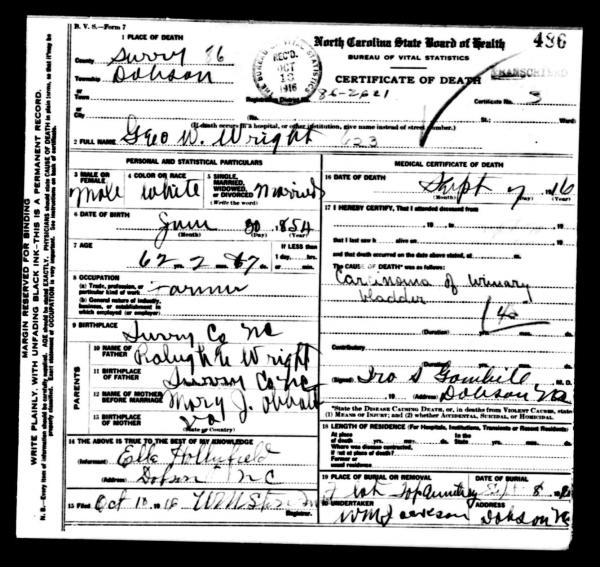 B. V. S.—Form 7
1 PLACE OF DEATH
County Surry 86
Township Dobson
or
Town
or
City
North Carolina State Board of Health
BUREAU OF VITAL STATISTICS
CERTIFICATE OF DEATH
436
TRANSCRIBED
BUREAU OF VITAL STATISTICS
REC'D.
OCT
13
1916
Registration District No. 86-2621
Certificate No. 3
St.; Ward
(If death occurs in a hospital, or other institution, give name instead of street number.)
2 FULL NAME Geo W. Wright 623
PERSONAL AND STATISTICAL PARTICULARS
3 MALE OR FEMALE Male
4 COLOR OR RACE White
5 SINGLE, MARRIED, WIDOWED, or DIVORCED (Write the word) Married
6 DATE OF BIRTH
30 1854
(Month) (Day) (Year)
7 AGE
62 yrs. 2 mos. ds.
IF LESS than
1 day, hrs.
or min.
8 OCCUPATION
(a) Trade, profession, or particular kind of work Farmer
(b) General nature of industry, business, or establishment in which employed (or employer)
9 BIRTHPLACE
Surry Co NC
PARENTS
10 NAME OF FATHER Wright
11 BIRTHPLACE OF FATHER Surry Co NC
12 NAME OF MOTHER BEFORE MARRIAGE Mary J.
13 BIRTHPLACE OF MOTHER
(State or Country)
14 THE ABOVE IS TRUE TO THE BEST OF MY KNOWLEDGE
(Informant)
(Address) Dobson NC
15 Filed Oct 10 1916
Registrar.
MEDICAL CERTIFICATE OF DEATH
16 DATE OF DEATH
Sept 7 1916
(Month) (Day) (Year)
17 I HEREBY CERTIFY, That I attended deceased from
, 19 , to , 19
that I last saw h alive on , 19
and that death occurred on the date above stated, at m.
The CAUSE OF DEATH* was as follows:
Carcinoma of urinary
bladder
(Duration) yrs. mos. ds.
Contributory
(Duration) yrs. mos. ds.
(Signed) Ira S M. D.
, 19 (Address) Dobson NC
*State the DISEASE CAUSING DEATH, or, in deaths from VIOLENT CAUSES, state
(1) MEANS OF INJURY; and (2) whether ACCIDENTAL, SUICIDAL, or HOMICIDAL.
18 LENGTH OF RESIDENCE (For Hospitals, Institutions, Transients or Recent Residents)
At place of death yrs. mos. ds.
In the State yrs. mos. ds.
Where was disease contracted, if not at place of death?
Former or usual residence
19 PLACE OF BURIAL OR REMOVAL
DATE OF BURIAL
Sept 8
20 UNDERTAKER
ADDRESS
Wm Jackson Dobson NC
MARGIN RESERVED FOR BINDING
WRITE PLAINLY, WITH UNFADING BLACK INK—THIS IS A PERMANENT RECORD.
N. B.—Every item of information should be carefully supplied. AGE should be stated EXACTLY. PHYSICIANS should state CAUSE OF DEATH in plain terms, so that it may be properly classed. Exact statement of OCCUPATION is very important. See instructions on back of certificate.